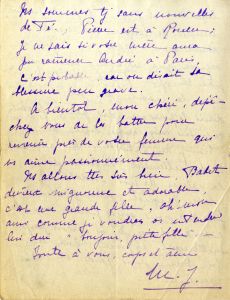 Des sommes ty sans nouvelles
de ; Pierre est à Rouen ;
Je ne sais si votre mère aura
pu ramener André à Paris,
c'est probable, car on disait sa
blessure peu grave.
A bientôt, mon chéri, dépê-
chez vous de les battre pour
revenir près de votre femme qui
vs aime passionnément.
Des allons très bien. Badet
devient mignonne et adorable,
c'est une grande fille. ah! mon
ami comme je voudrais vs entendre
lui dire " bonjour, petite fille "
Toute à vous, corps et âme
M. J.